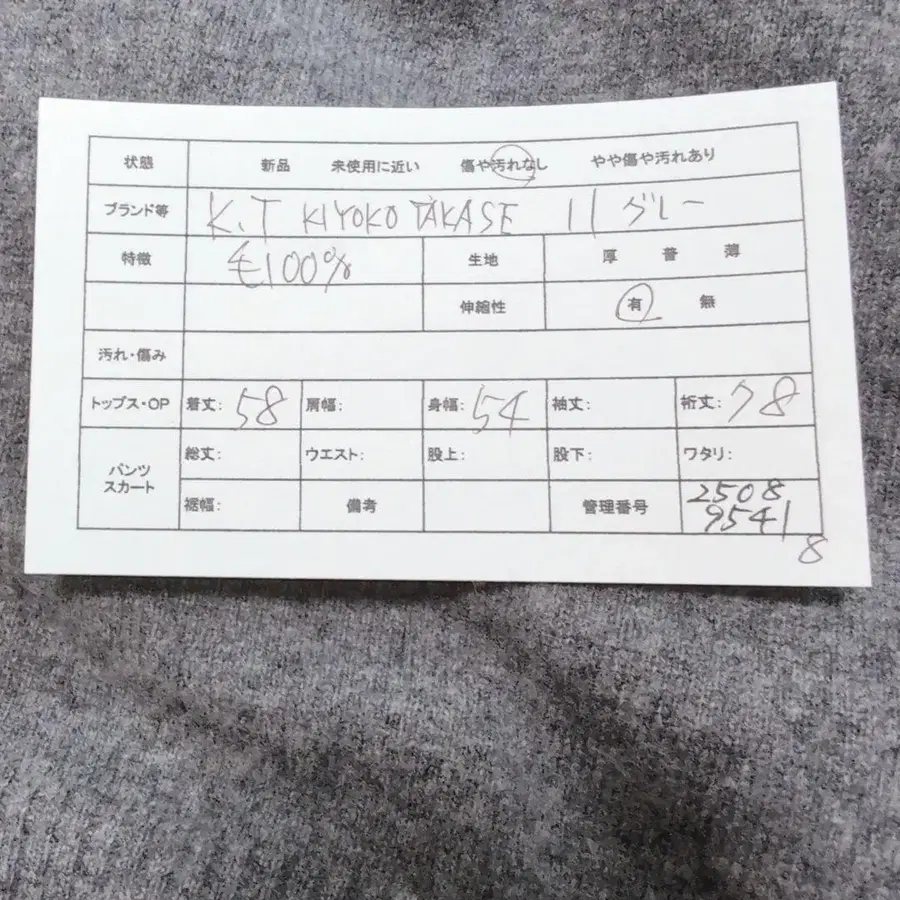 状態 新品 未使用に近い 傷や汚れなし やや傷や汚れあり
ブランド等 K.T KIYOKO TAKASE 11 グレー
特徴 毛100% 生地 厚 普 薄
伸縮性 有 無
汚れ・傷み
トップス・OP 着丈: 58 肩幅: 身幅: 54 袖丈: 裄丈: 78
パンツ スカート 総丈: ウエスト: 股上: 股下: ワタリ:
裾幅: 備考 管理番号 2508
9541
8